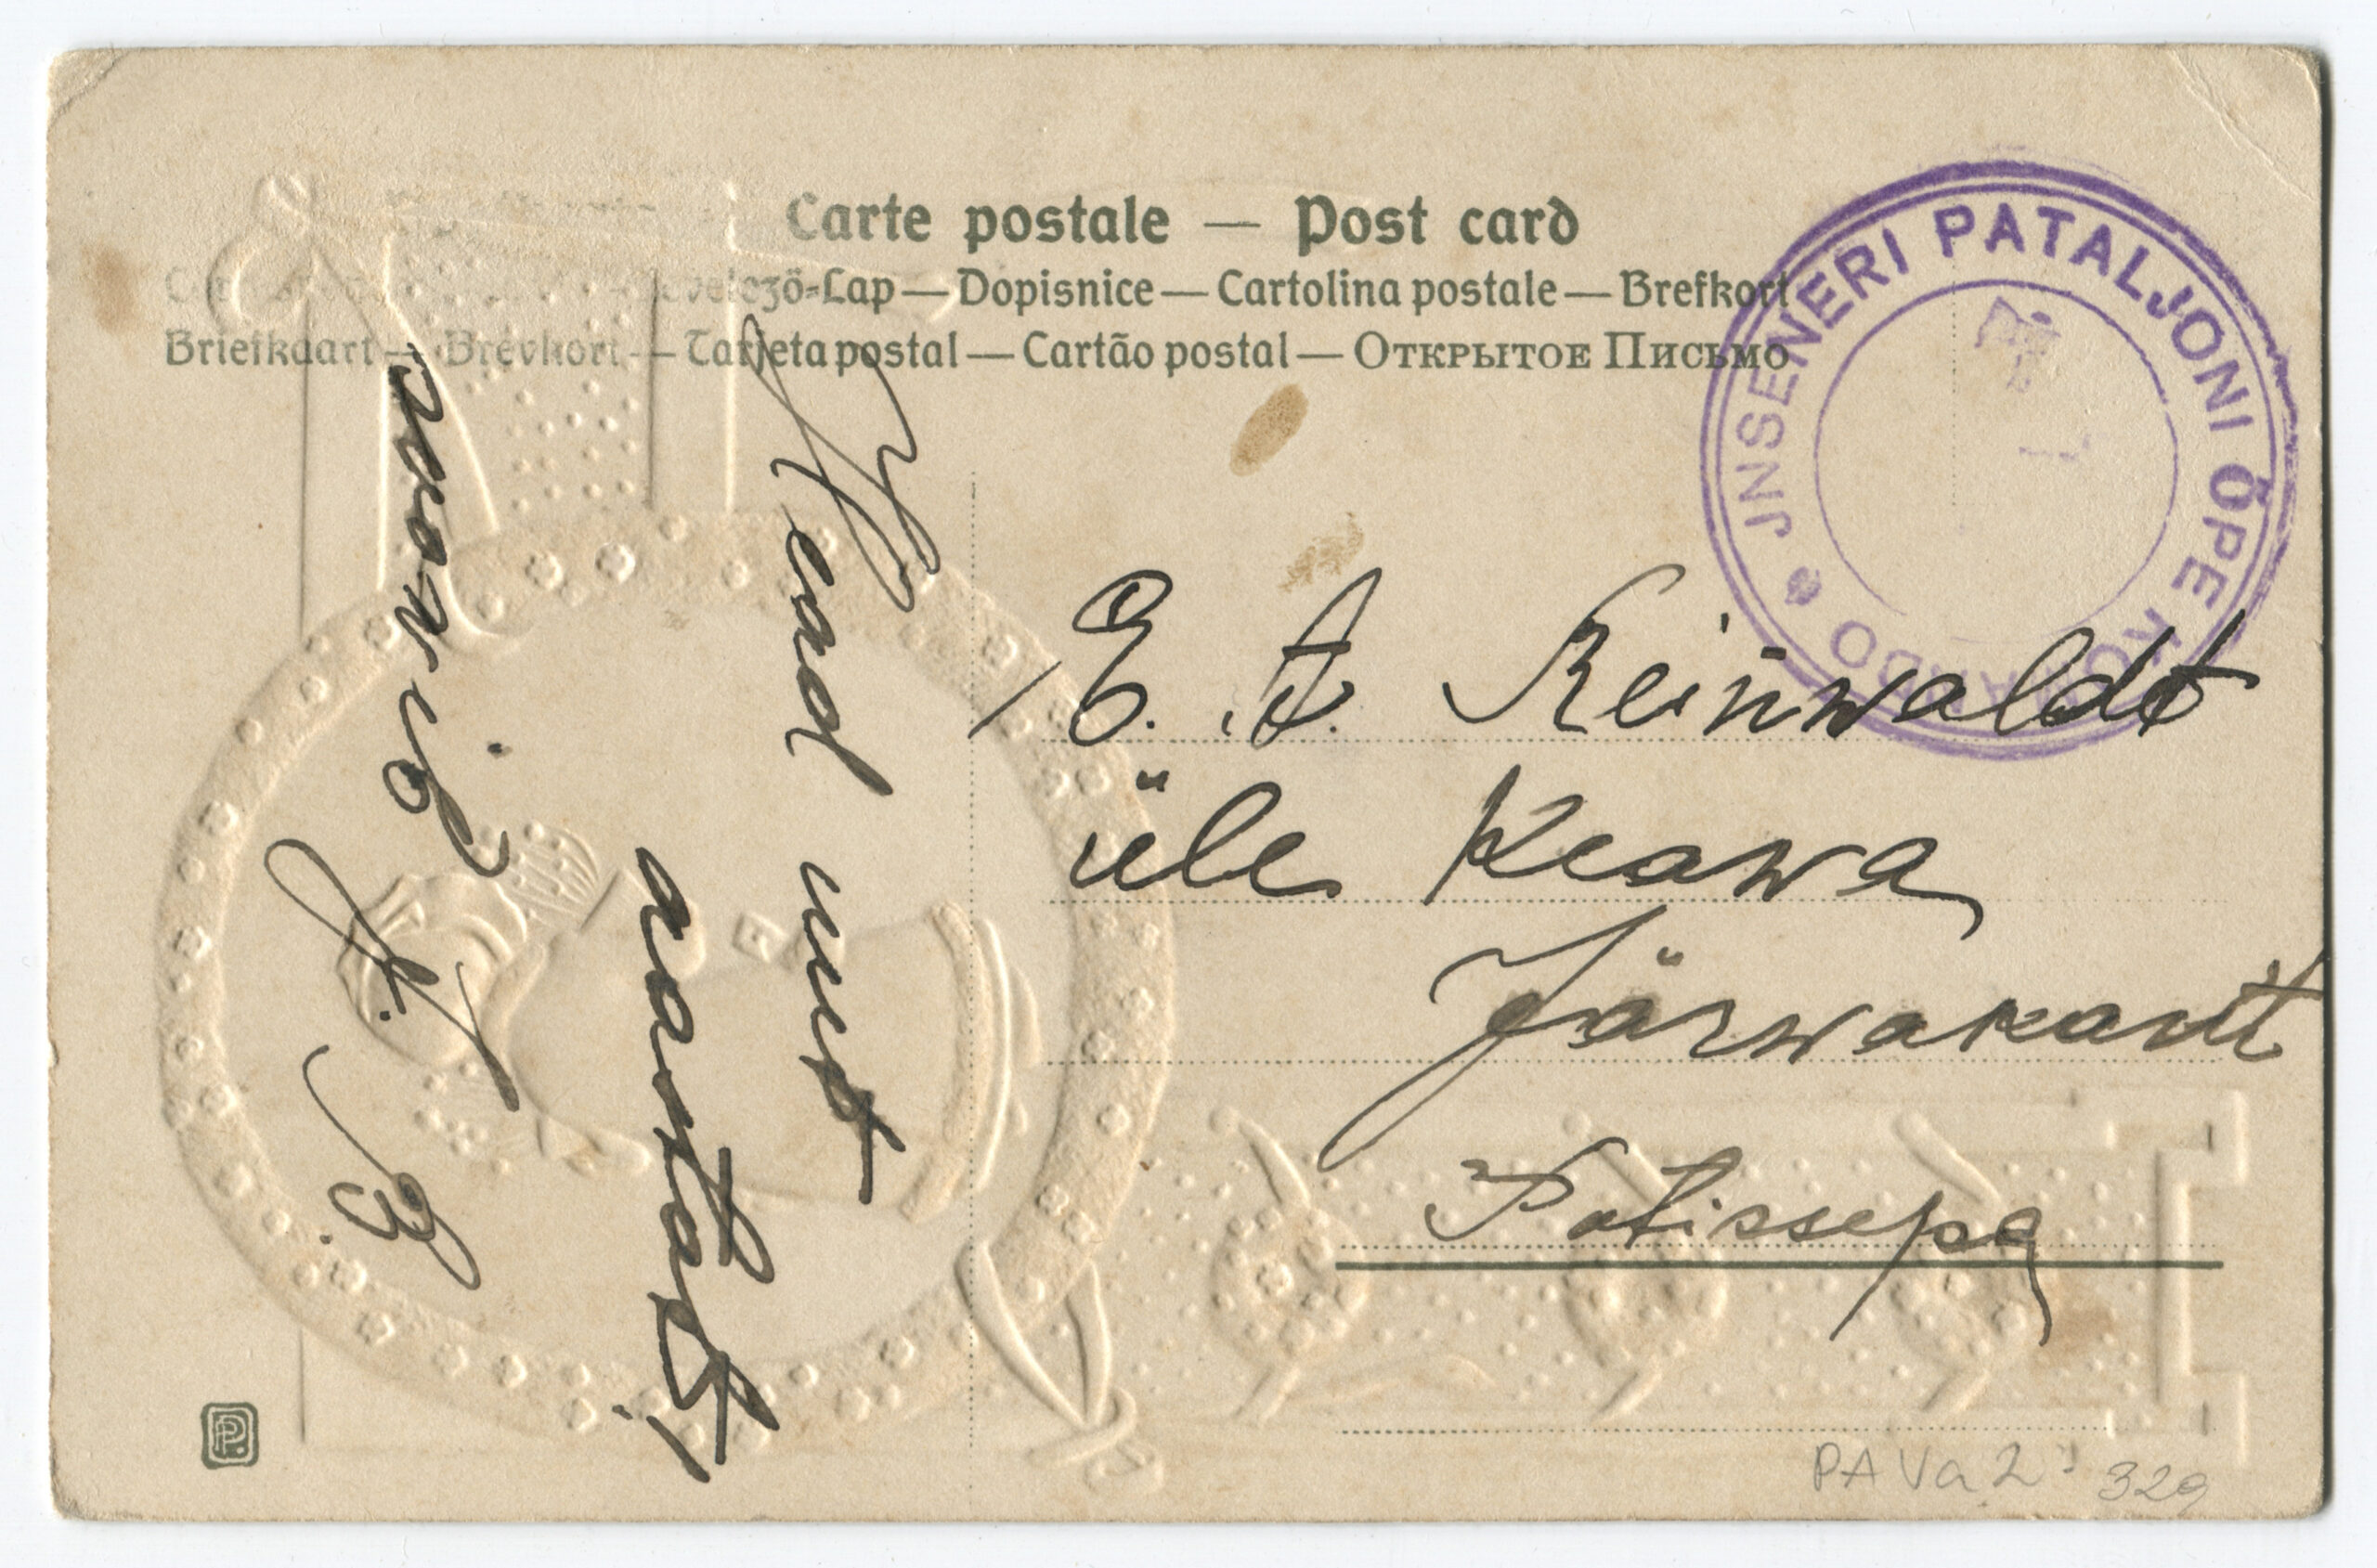 Carte postale — Post card
velezö-Lap — Dopisnice — Cartolina postale — Brefkort
Briefkaart — Brevkort — Tarjeta postal — Cartão postal — Открытое Письмо
JNSENERI PATALJONI ÕPE KOMANDO
Head uut
aastat!
soovib
A. R.
E. A. Reinwaldt
üle Keawa
Järwakant
Potissepa
PP
PA Va 2 329